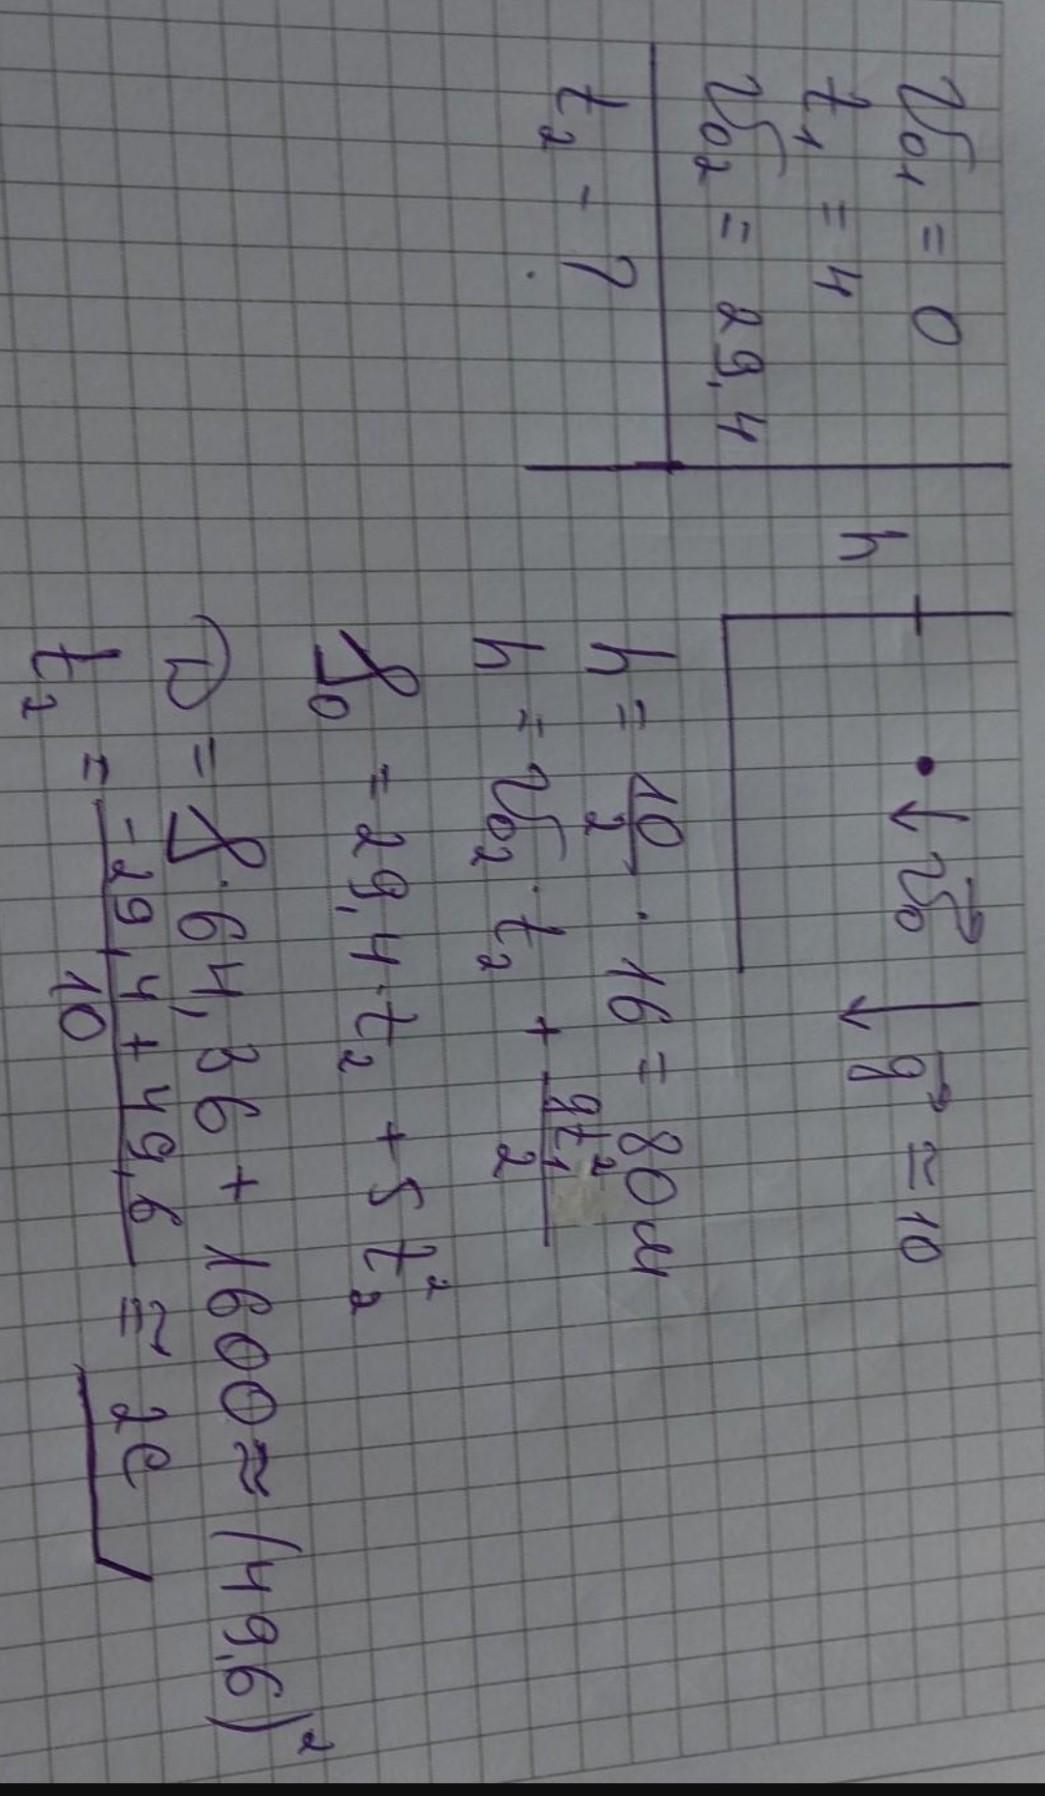 v₀₁ = 0
t₁ = 4
v₀₂ = 29,4
t₂ - ?
h
v₀ g ≃ 10
h = 10/2 · 16 = 80 м
h = v₀₂ · t₂ + gt₁²/2
80 = 29,4 · t₂ + 5t₂²
D = 864,36 + 1600 ≈ (49,6)²
t₂ = (-29,4 + 49,6)/10 ≃ 2c